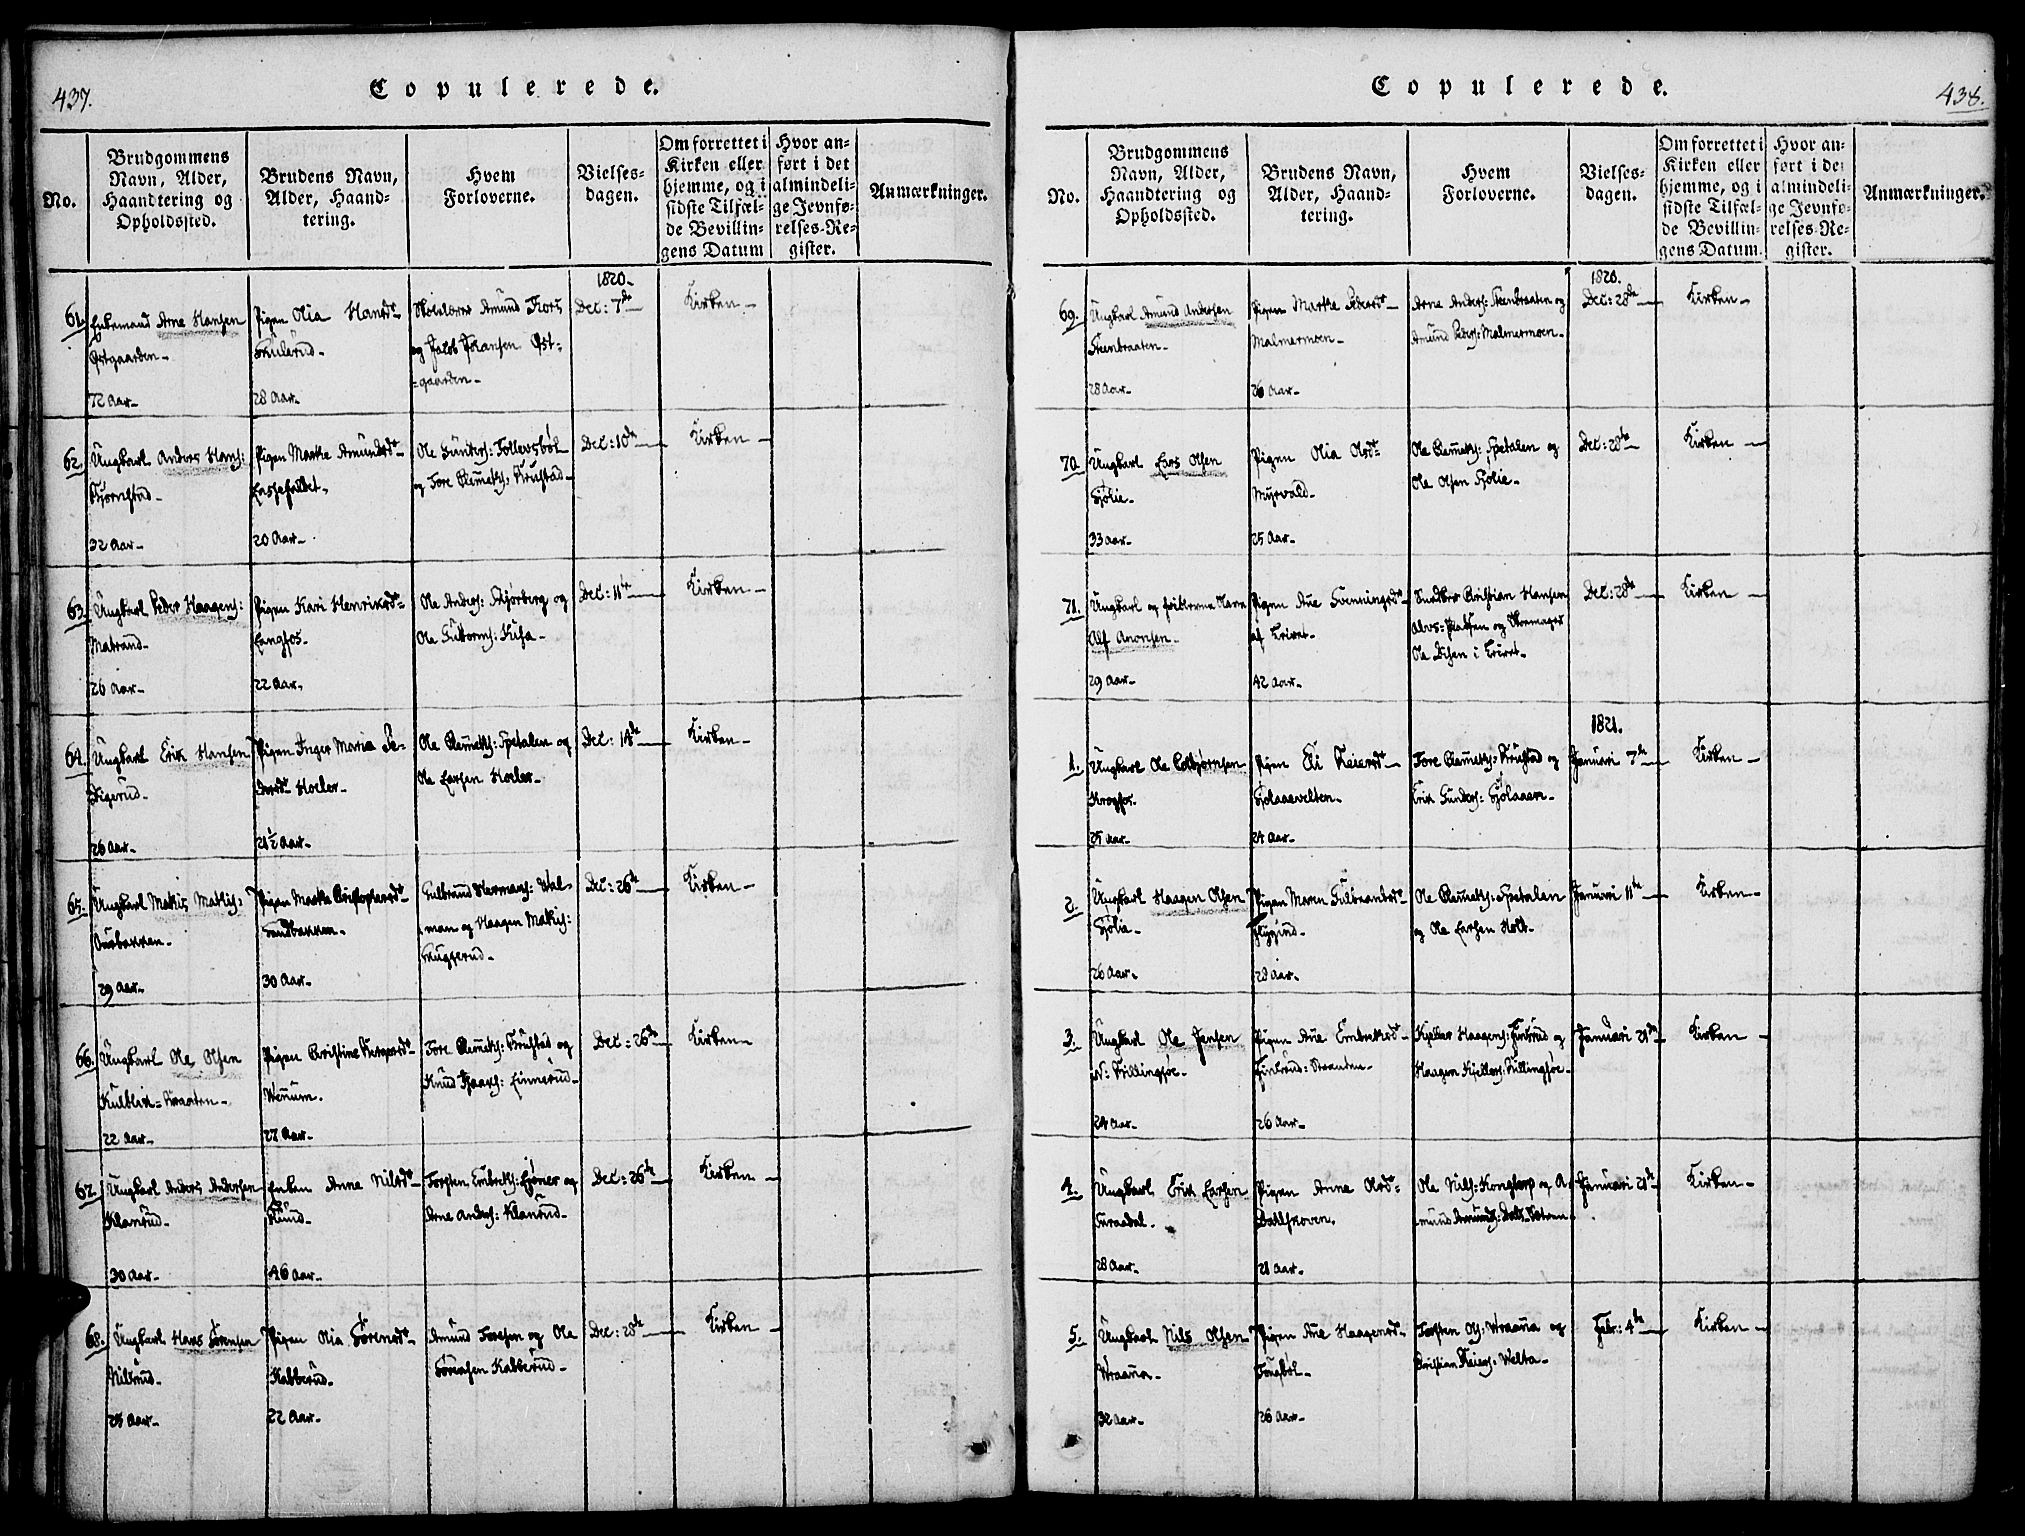 437.
Copulerede.
No.
Brudgommens
Navn, Alder,
Haandtering og
Opholdssted.
Brudens Navn,
Alder, Haand-
tering.
Hvem
Forloverne.
Vielses-
dagen.
Om forrettet i
Kirken eller
hjemme, og i
sidste Tilfæl-
de Bevillin-
gens Datum
Hvor an-
ført i det
almindeli-
ge Jevnfø-
relses-Re-
gister.
Anmærkninger.
1820.
61.
Enkemand Arne Hansen
Østgaarden
72 Aar
Pigen Olia Hansdr
Skulerud
28 Aar
Skolelærer Amund Fors
og Jacob Johansen Øst-
=gaarden
Dec: 7de
Kirken
62.
Ungkarl Anders Hans:
Kjørnstad
32 Aar
Pigen Marthe Amundsdr
20 Aar
Ole Gunders: Follevsbøl
og Tore Clemets: Krustad
Dec: 10de
Kirken
63.
Ungkarl Peder Haagens:
Matrand
26 Aar
Pigen Kari Henriksdr
Langfos
22 Aar
Ole Anders: Skjørberg og
Ole Guttorms: Kisa
Dec: 11te
Kirken
64.
Ungkarl Erik Hansen
Digerud
26 Aar
Pigen Inger Maria Pe-
dersdr Holer
21½ Aar
Ole Clemets: Spetalen og
Ole Larsen Holer
Dec: 14de
Kirken
65.
Ungkarl Mathis Mathis:
Aurbakken
29 Aar
Pigen Marthe Christophersdr
Sandbakken
30 Aar
Gulbrand Hermans: Wal-
man og Haagen Mathis:
Skuggerud
Dec: 26de
Kirken
66.
Ungkarl Ole Olsen
Kulblik=Braaten
22 Aar
Pigen Christine
Wenum.
27 Aar
Tore Clemets: Krustad og
Knud Isaaks: Linnerud
Dec: 26de
Kirken
67.
Ungkarl Anders Andersen
Klanrud
30 Aar
Enken Anne Nilsdr
Rund
46 Aar
Torsten Embrets: Ejsner og
Arne Anders: Klanrud
Dec: 26de
Kirken
68.
Ungkarl Hans Sørensen
Nilsrud
25 Aar
Pigen Olia Sørensdr
Kabberud
22 Aar
Amund Toresen og Ole
Sørensen Kabberud
Dec: 28de
Kirken
438.
Copulerede.
No.
Brudgommens
Navn, Alder,
Haandtering og
Opholdssted.
Brudens Navn,
Alder, Haand-
tering.
Hvem
Forloverne.
Vielses-
dagen.
Om forrettet i
Kirken eller
hjemme, og i
sidste Tilfæl-
de Bevillin-
gens Datum.
Hvor an-
ført i det
almindeli-
ge Jevnfø-
relses-Re-
gister.
Anmærkninger.
1820.
69.
Ungkarl Amund Andersen
Steenbraaten
28 Aar
Pigen Marthe Pedersdr
Malmermoen
26 Aar
Arne Anders: Steenbraaten og
Amund Peders: Malmermoen
Dec: 28de
Kirken
70.
Ungkarl Lars Olsen
Sjølie
33 Aar
Pigen Olia Olsdr
Myrvald
25 Aar
Ole Clemets: Spetalen og
Ole Olsen Sjølie
Dec: 28de
Kirken
71.
Ungkarl og
Alf Aronsen
29 Aar
Pigen Ane Svenningsdr
af
42 Aar
Christian Hansen
og Skomager
Ole Disen i
Dec: 28de
Kirken
1821.
1.
Ungkarl Ole Colbjørnsen
Krogfos
25 Aar
Pigen Eli Reiersdr
Sjølaaevelten
24 Aar
Tore Clemets: Krustad og
Erik Gunders: Sjølaaen
Januari 7de
Kirken
2.
Ungkarl Haagen Olsen
Sjølie
26 Aar
Pigen Maren Gulbrandsdr
Flygind
28 Aar
Ole Clemets: Spetalen
og Ole Larsen Holt
Januari 11te
Kirken
3.
Ungkarl Ole Jensen
N: Skillingsøe
24 Aar
Pigen Ane Embretsdr
Finsrud=Braaten
26 Aar
Kjeller Haagens: Finsrud og
Haagen Kjellers: Skillingsøe
Januari 21de
Kirken
4.
Ungkarl Erik Larsen
Furaadal
28 Aar
Pigen Anne Olsdr
Dalskoven.
21 Aar
Ole Nils: Kongtorp og A-
mund Amunds: Dals=
Januari 21de
Kirken
5.
Ungkarl Nils Olsen
Wraana
32 Aar
Pigen Ane Haagensdr
26 Aar
Torsten Ols: Wraana og
Christian Reiers: Welta
Febr: 4de
Kirken